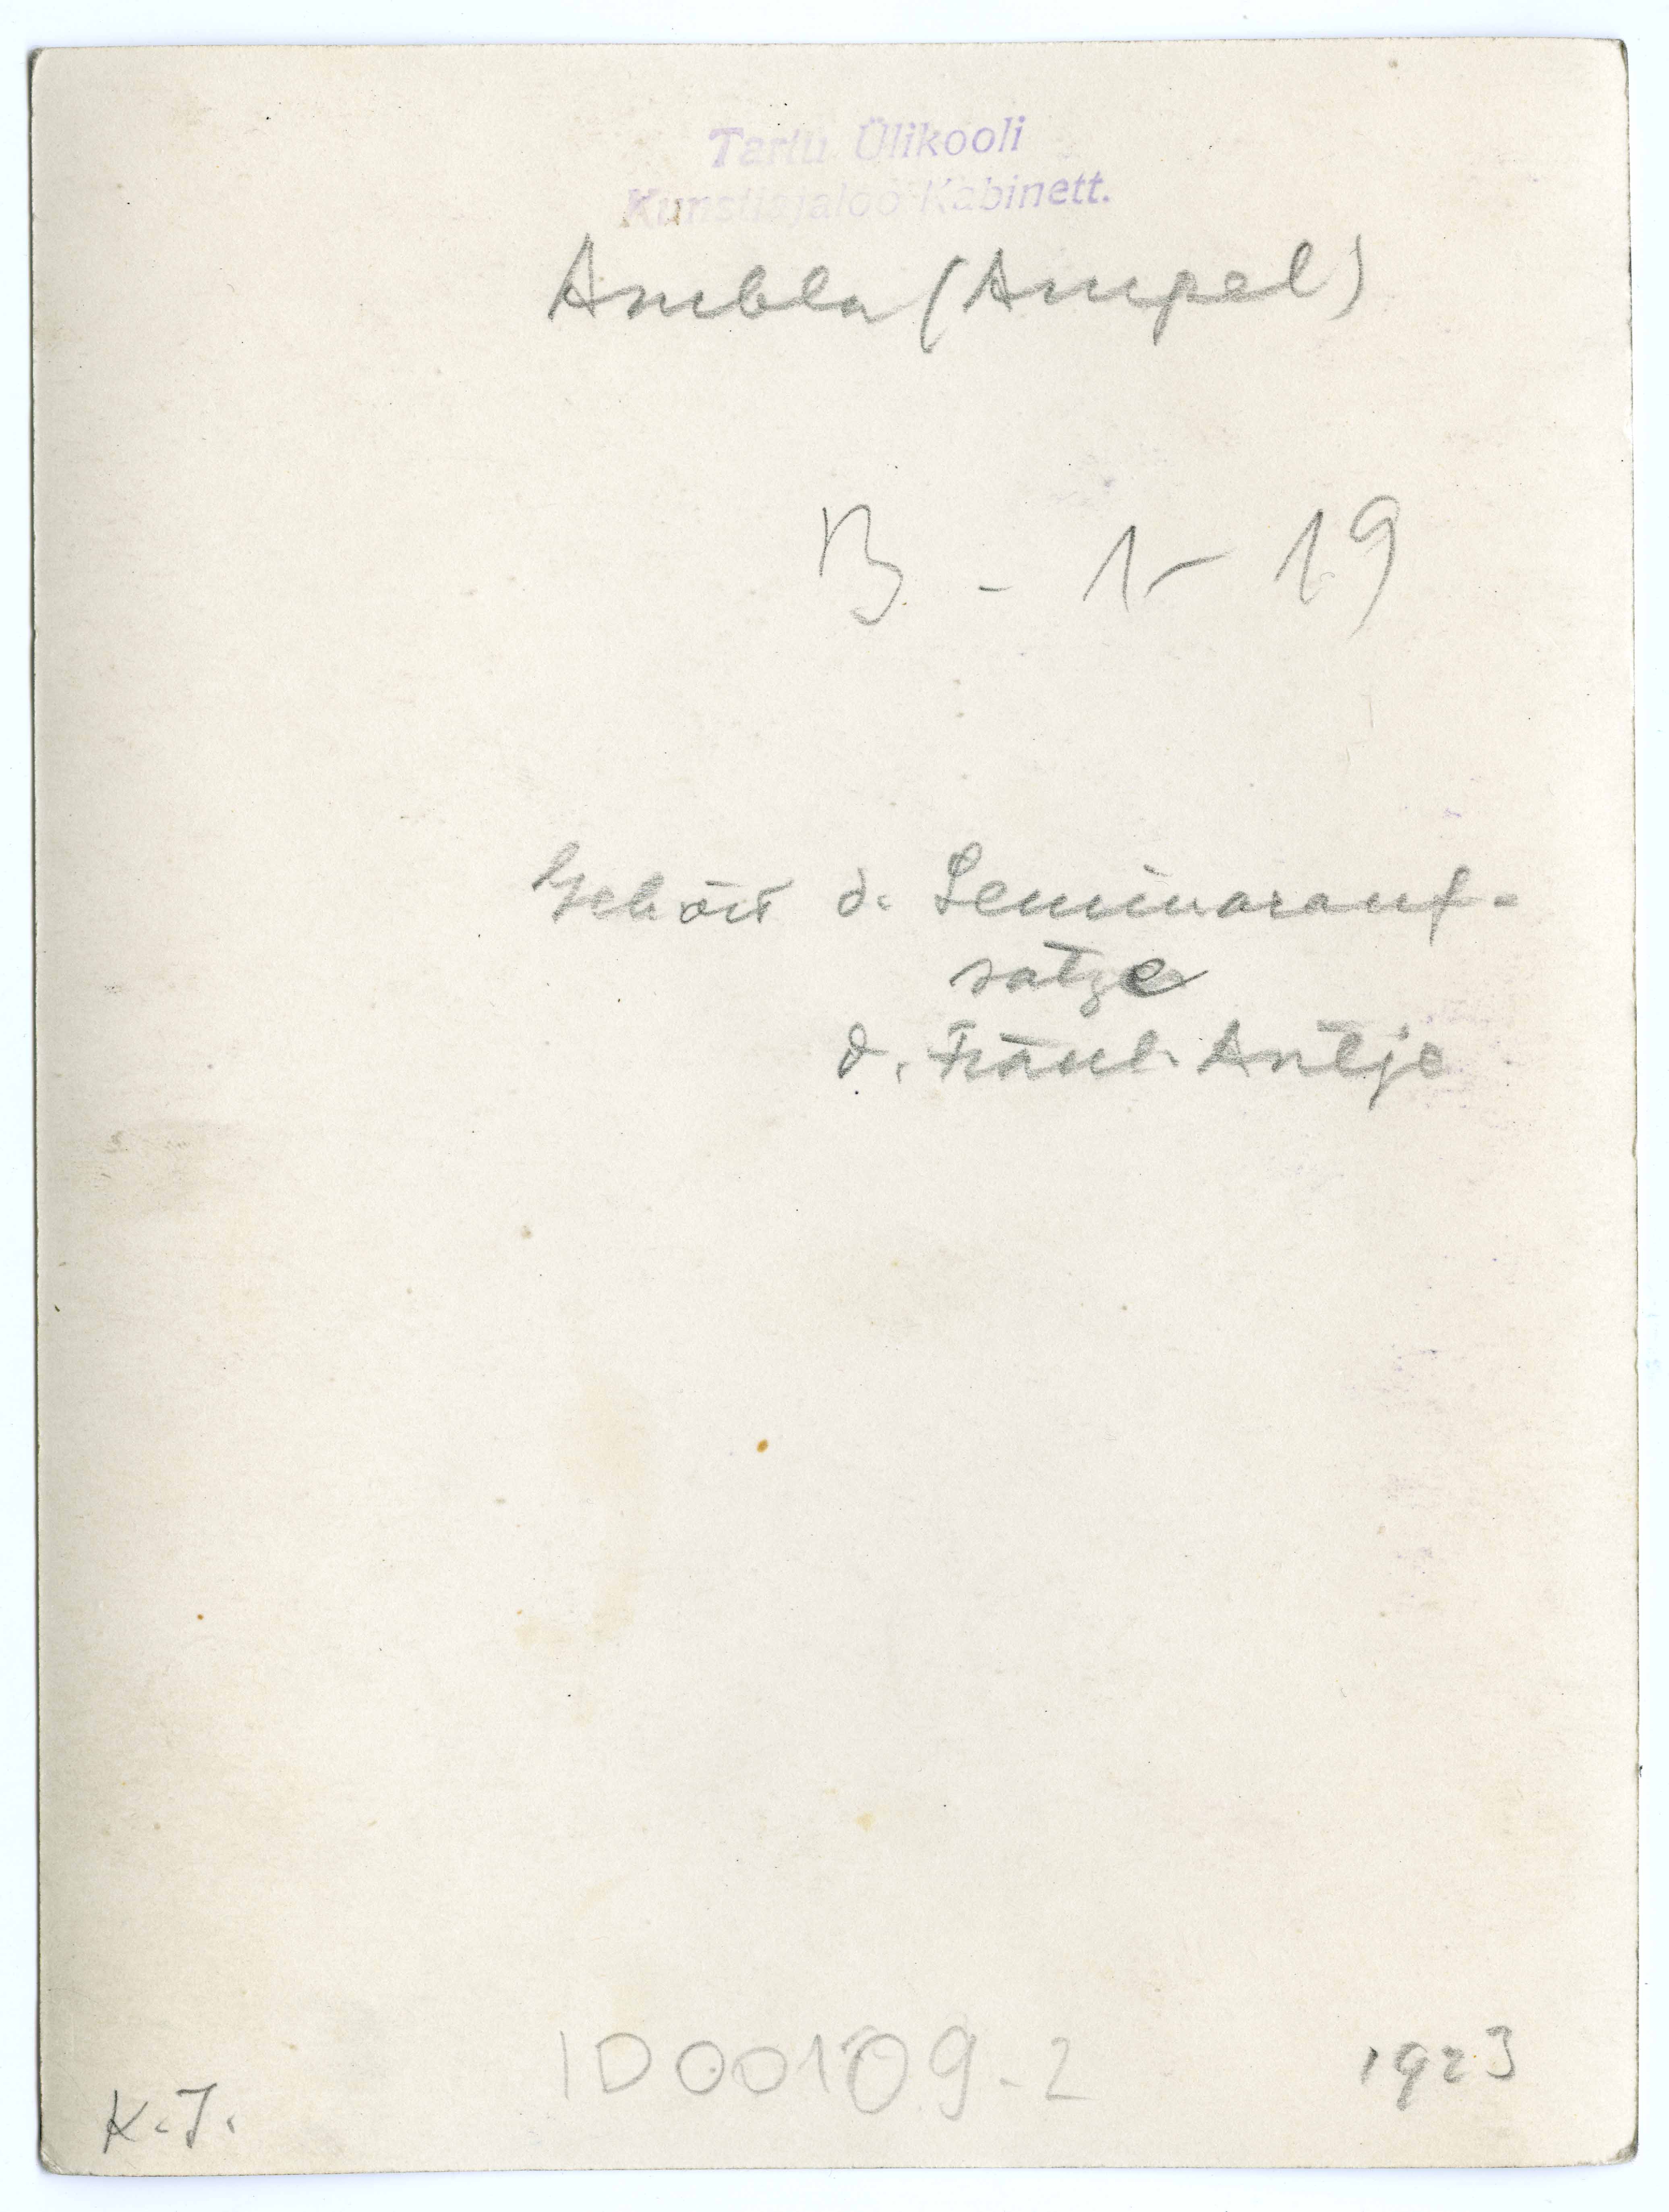 Tartu Ülikooli
Kunstiajaloo Kabinett.
Ambla (Ampel)
B - 1 - 19
Gehört d. Seminarauf-
satze
d. Fräul. Antje
ID00109-2
1923
K.J.